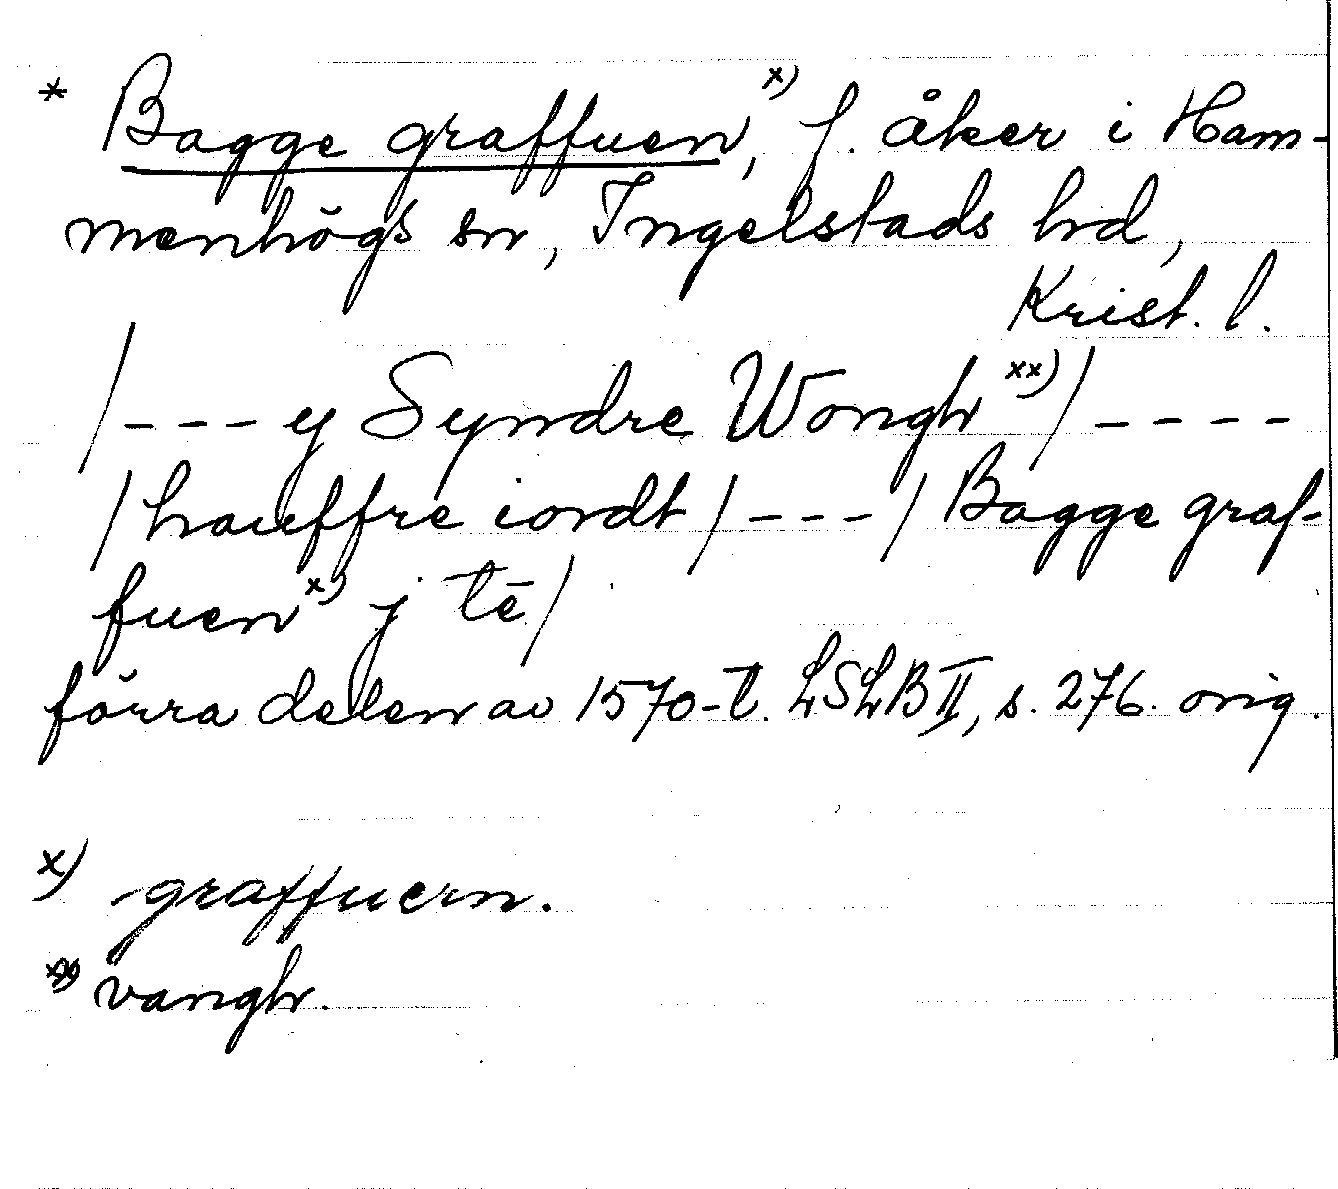 * Bagge graffuen,x) f. åker i Ham-
menhögs sn, Ingelstads hd,
Krist. l.
/---y Syndre Wongh xx)/----
/hauffre iordt/---/Bagge graf-
fuen x) j tē/
förra delen av 1570-t. LSLB II, s. 276. orig.
x) -graffuern.
xx) vangh.